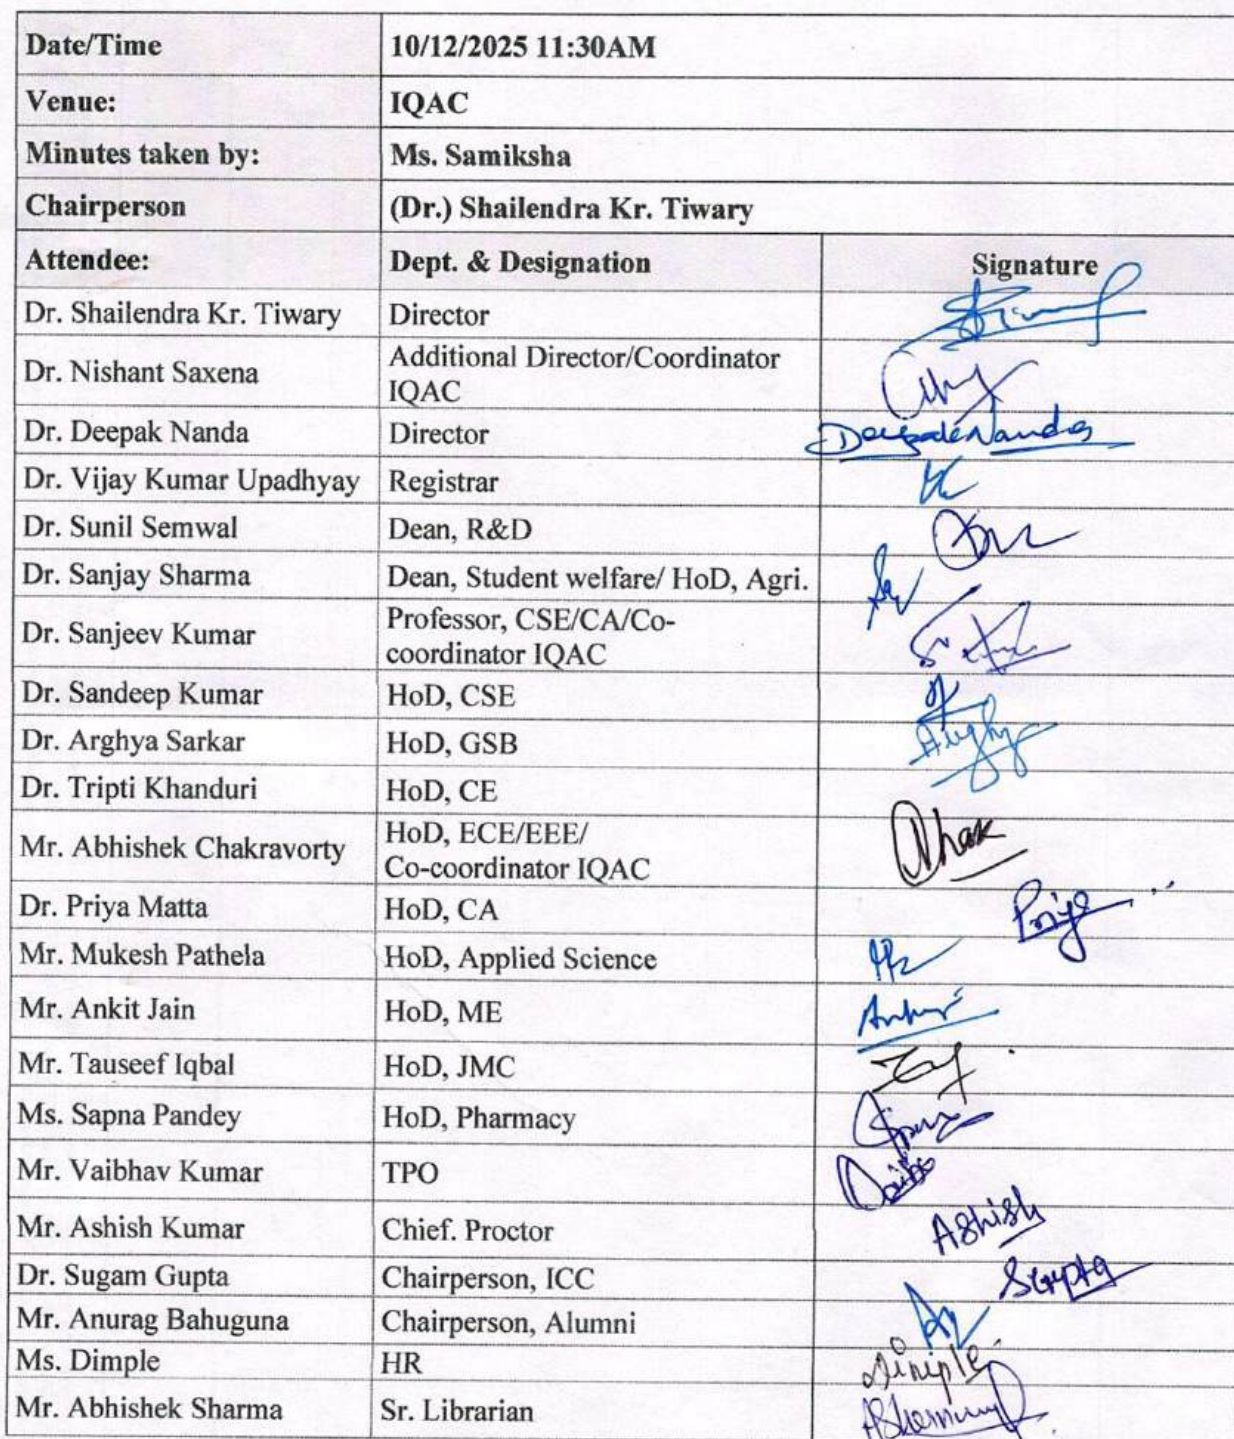 Date/Time 10/12/2025 11:30AM
Venue: IQAC
Minutes taken by: Ms. Samiksha
Chairperson (Dr.) Shailendra Kr. Tiwary
Attendee: Dept. & Designation Signature
Dr. Shailendra Kr. Tiwary Director
Dr. Nishant Saxena Additional Director/Coordinator
IQAC
Dr. Deepak Nanda Director Deepak Nanda
Dr. Vijay Kumar Upadhyay Registrar
Dr. Sunil Semwal Dean, R&D
Dr. Sanjay Sharma Dean, Student welfare/ HoD, Agri.
Dr. Sanjeev Kumar Professor, CSE/CA/Co-
coordinator IQAC
Dr. Sandeep Kumar HoD, CSE
Dr. Arghya Sarkar HoD, GSB
Dr. Tripti Khanduri HoD, CE
Mr. Abhishek Chakravorty HoD, ECE/EEE/
Co-coordinator IQAC
Dr. Priya Matta HoD, CA Priya
Mr. Mukesh Pathela HoD, Applied Science
Mr. Ankit Jain HoD, ME
Mr. Tauseef Iqbal HoD, JMC
Ms. Sapna Pandey HoD, Pharmacy
Mr. Vaibhav Kumar TPO
Mr. Ashish Kumar Chief. Proctor Ashish
Dr. Sugam Gupta Chairperson, ICC SGupta
Mr. Anurag Bahuguna Chairperson, Alumni
Ms. Dimple HR Dimple
Mr. Abhishek Sharma Sr. Librarian